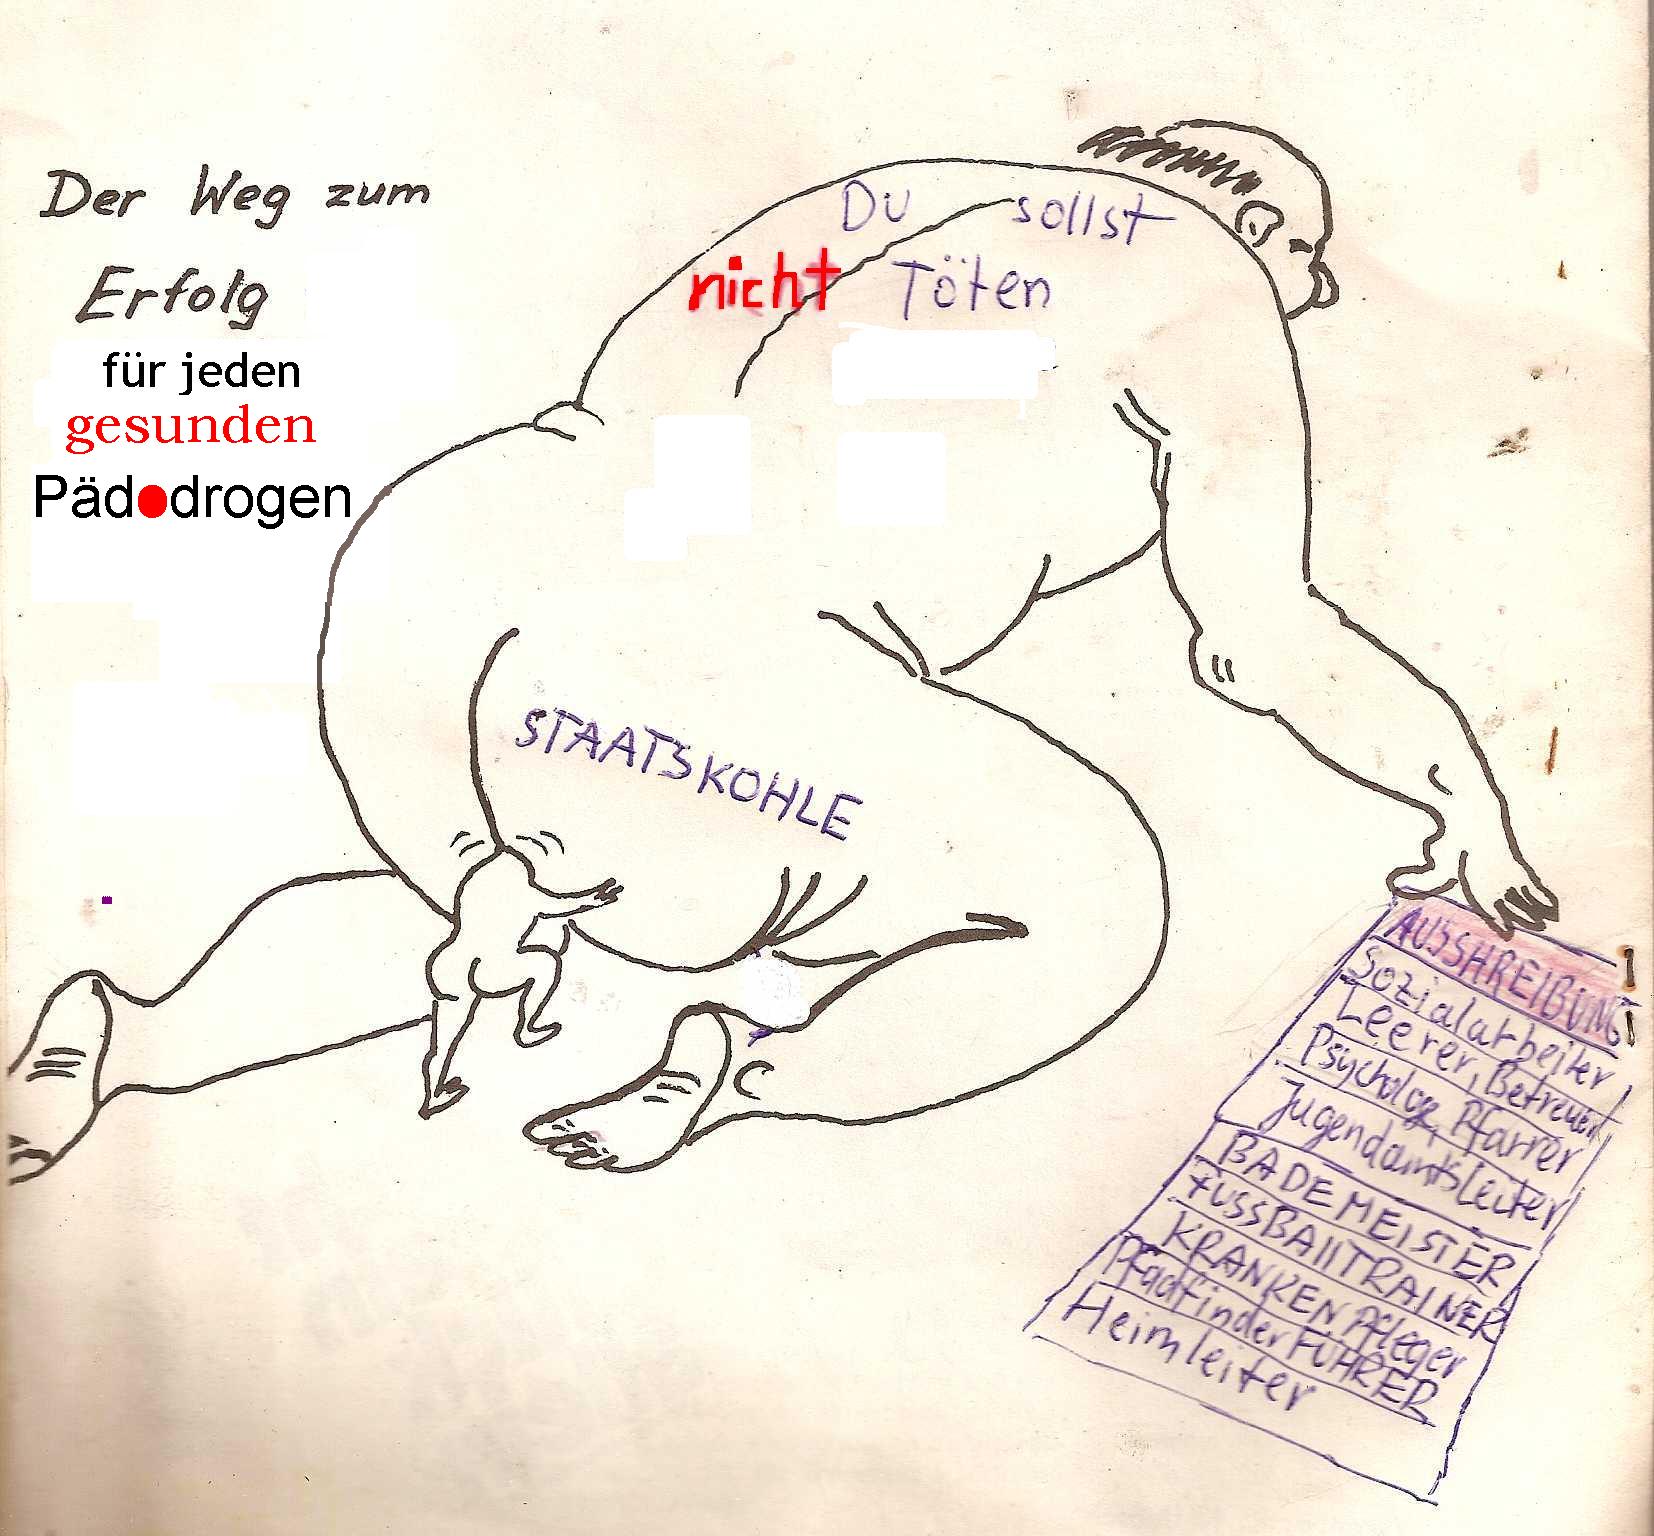 Der Weg zum
Erfolg
für jeden
gesunden
Pädodrogen
Du sollst
nicht Töten
STAATSKOHLE
AUSSHREIBUNG
Sozialarbeiter
Leerer, Betreuer
Psycholog, Pfarrer
Jugendamtsleiter
BADEMEISTER
FUSSBAllTRAINER
KRANKENPfleger
PfadfinderFÜHRER
Heimleiter